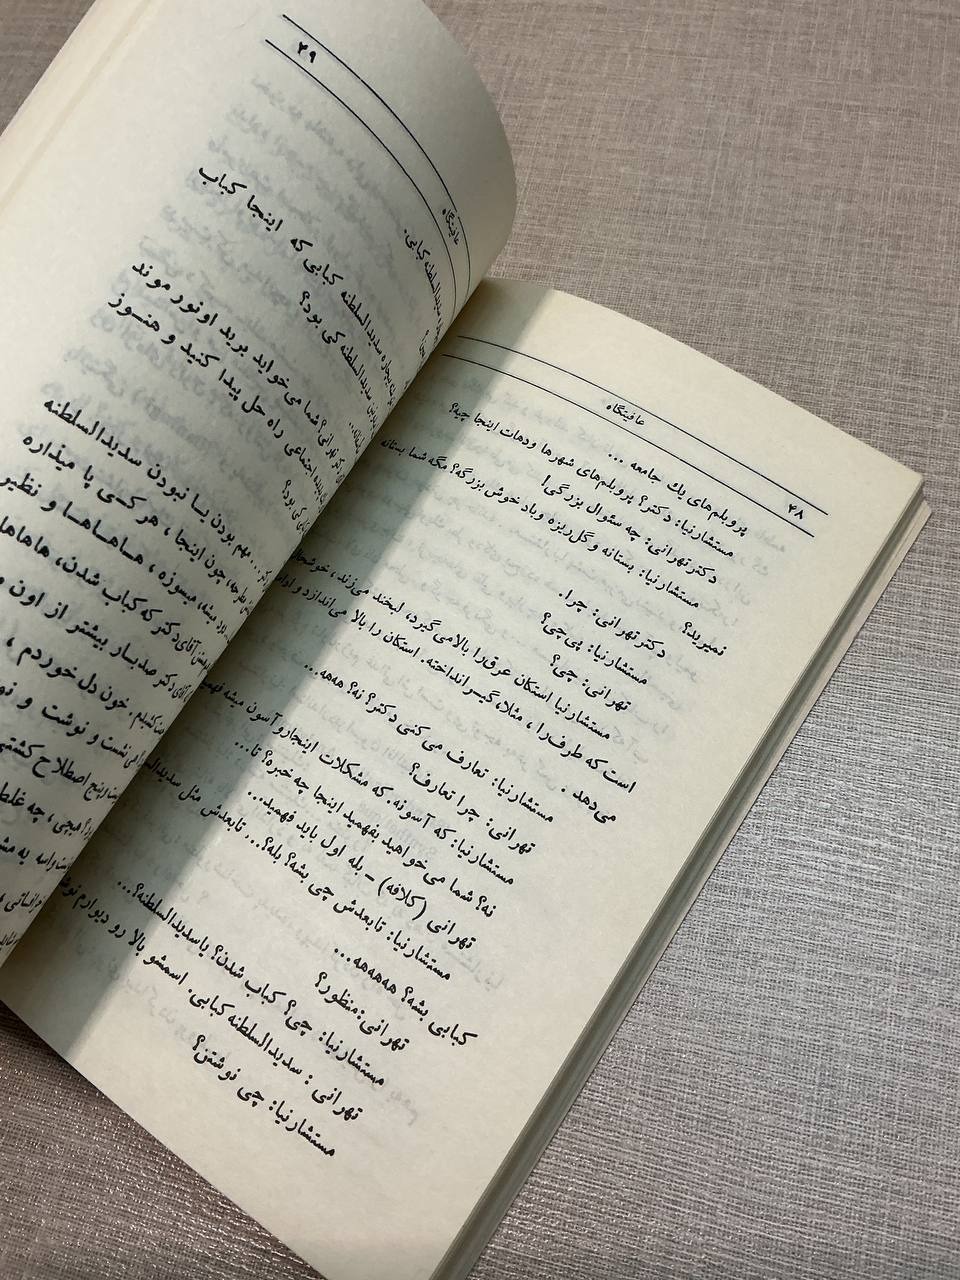 ۲۸
عافیتگاه
پروبلم‌های یك جامعه ...
مستشارنیا: دکتر؟ پروبلم‌های شهرها ودهات اینجا چیه؟
دکترتهرانی: چه سئوال بزرگی!
مستشارنیا: بستانه و گل‌ریزه وباد خوش بزرگه؟ مگه شما بستانه
نمیرید؟
دکترتهرانی: چرا.
مستشارنیا: پی‌چی؟
تهرانی: چی؟
مستشارنیا استکان عرق‌را بالامی‌گیرد، لبخند می‌زند، خوشحال
است که طرف‌را ، مثلا، گیرانداخته. استکان را بالا می‌اندازد و ادامه
می‌دهد .
مستشارنیا: تعارف می‌کنی دکتر؟ نه؟ هه‌هه...
تهرانی: چرا تعارف؟
مستشارنیا: که آسونه. که مشکلات اینجارو آسون میشه
نه؟ شما می‌خواهید بفهمید اینجا چه خبره؟ تا...
تهرانی (کلافه) – بله اول باید فهمید...
مستشارنیا: تابعدش چی بشه؟ بله؟... تابعدش مثل
کبابی بشه؟ هه‌هه‌هه...
تهرانی:منظور؟
مستشارنیا: چی؟ کباب شدن؟ یاسدیدالسلطنه؟...
تهرانی : سدیدالسلطنه کبابی. اسمشو بالا رو دیوارم
مستشارنیا: چی نوشتن؟
۲۹
عافیتگاه
سدیدالسلطنه کبابی.
بیچاره سدیدالسلطنه کبابی که اینجا کباب
سدیدالسلطنه کی بود؟
تهرانی؟ شما می‌خواید برید اونور موند
اجتماعی راه حل پیدا کنید و هنوز
کی بود؟
مهم بودن یا نبودن سدیدالسلطنه
چون اینجا ، هر کسی پا میذاره
میشه، میسوزه ، هاهاها و نظیر
آقای دکتر که کباب شدن، هاهاها
آقای دکتر صدبار بیشتر از اون
کشیدم. خون دل خوردم ،
نشست و نوشت و
اصطلاح کشتی
هیچی ، چه غلط
واسه